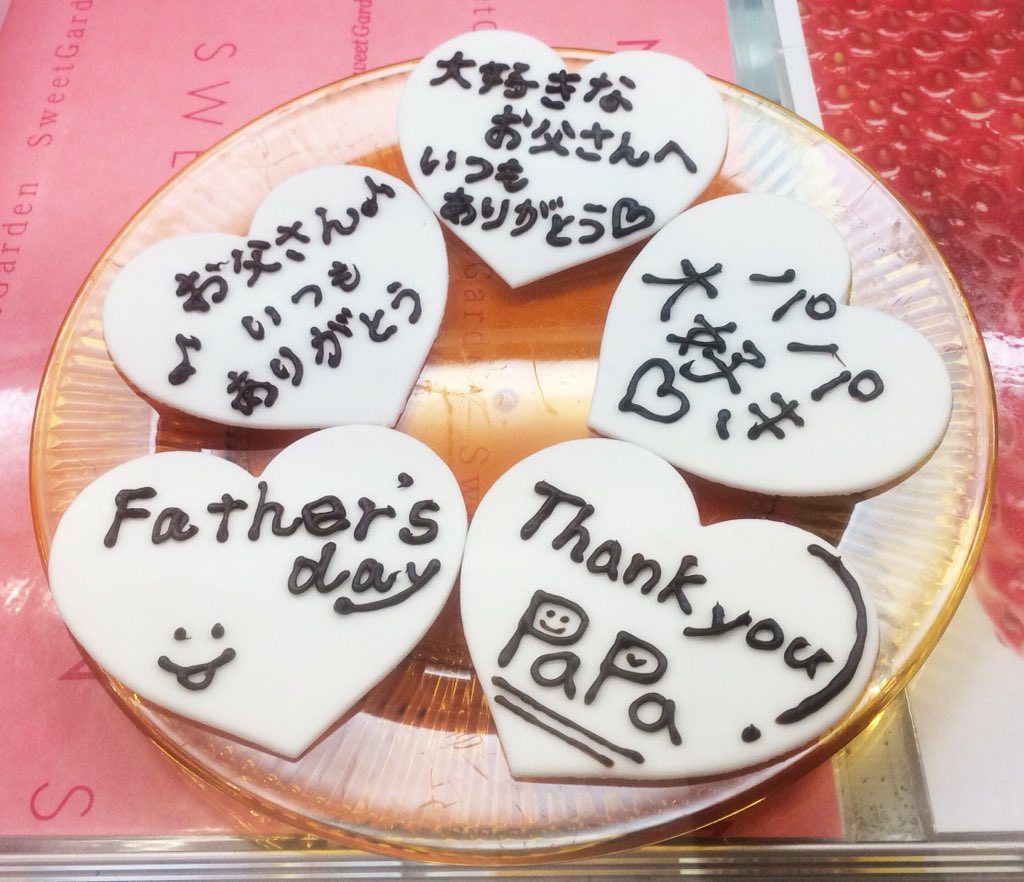 大好きな
お父さんへ
いつも
ありがとう♡
お父さん♪
♪ いつも
ありがとう
パパ
大好き
♡
Father's
day
Thank you
PaPa
SweetGarden
SweetGard